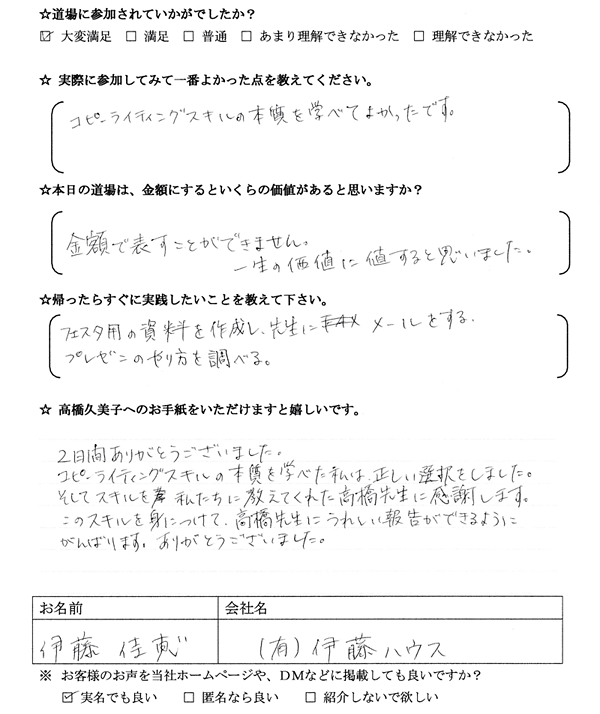 ☆道場に参加されていかがでしたか?
☑ 大変満足 □ 満足 □ 普通 □ あまり理解できなかった □ 理解できなかった
☆ 実際に参加してみて一番よかった点を教えてください。
コピーライティングスキルの本質を学べてよかったです。
☆本日の道場は、金額にするといくらの価値があると思いますか?
金額で表すことができません。
一生の価値に値すると思いました。
☆帰ったらすぐに実践したいことを教えて下さい。
フェスタ用の資料を作成し、先生に メールをする。
プレゼンのやり方を調べる。
☆ 高橋久美子へのお手紙をいただけますと嬉しいです。
2日間ありがとうございました。
コピーライティングスキルの本質を学べた私は、正しい選択をしました。
そしてスキルを 私たちに教えてくれた高橋先生に感謝します。
このスキルを身につけて、高橋先生にうれしい報告ができるように
がんばります。ありがとうございました。
お名前 会社名
伊藤 佳恵 (有)伊藤ハウス
※ お客様のお声を当社ホームページや、DMなどに掲載しても良いですか?
☑ 実名でも良い □ 匿名なら良い □ 紹介しないで欲しい